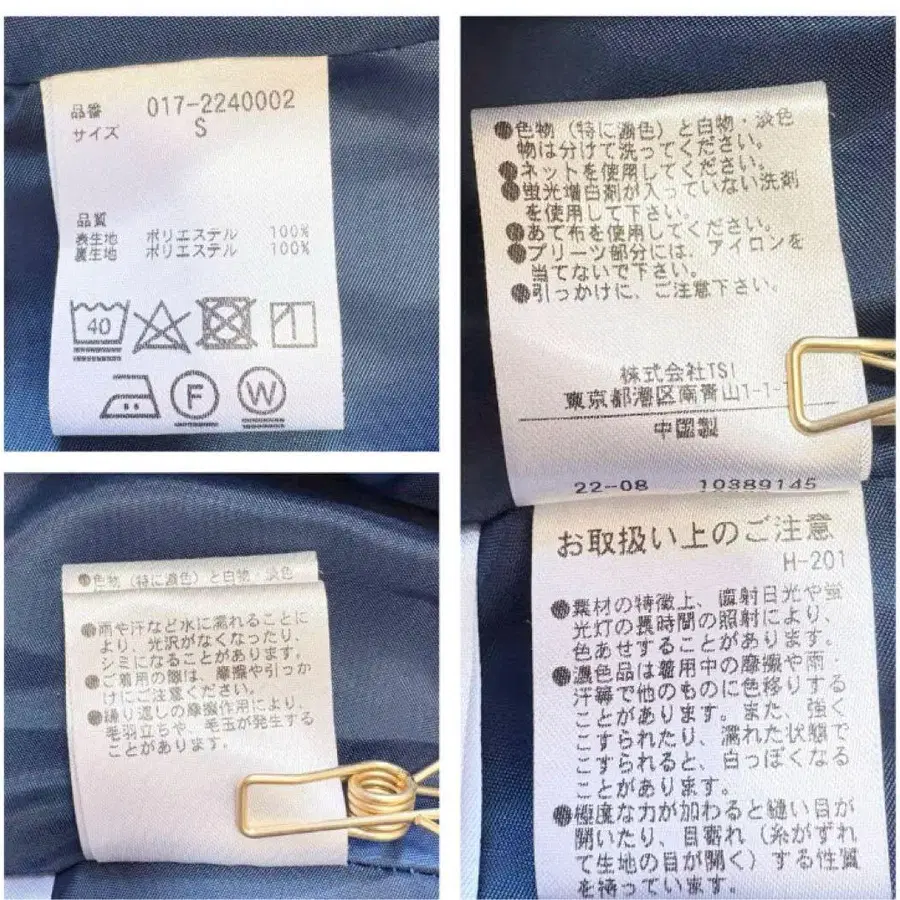 品番 017-2240002
サイズ S
品質
表生地 ポリエステル 100%
裏生地 ポリエステル 100%
40
F
W
●色物（特に濃色）と白物・淡色
物は分けて洗ってください。
●ネットを使用してください。
●蛍光増白剤が入っていない洗剤
を使用して下さい。
●あて布を使用してください。
●プリーツ部分には、アイロンを
当てないで下さい。
●引っかけに、ご注意下さい。
株式会社TSI
東京都港区南青山1-1-1
中国製
22-08 10389145
●色物（特に濃色）と白物・淡色
●雨や汗など水に濡れることに
より、光沢がなくなったり、
シミになることがあります。
●ご着用の際は、摩擦や引っか
けにご注意ください。
●繰り返しの摩擦作用により、
毛羽立ちや、毛玉が発生する
ことがあります。
お取扱い上のご注意
H-201
●素材の特徴上、直射日光や蛍
光灯の長時間の照射により、
色あせすることがあります。
●濃色品は着用中の摩擦や雨・
汗等で他のものに色移りする
ことがあります。また、強く
こすられたり、濡れた状態で
こすられると、白っぽくなる
ことがあります。
●極度な力が加わると縫い目が
開いたり、目寄れ（糸がずれ
て生地の目が開く）する性質
を持っています。